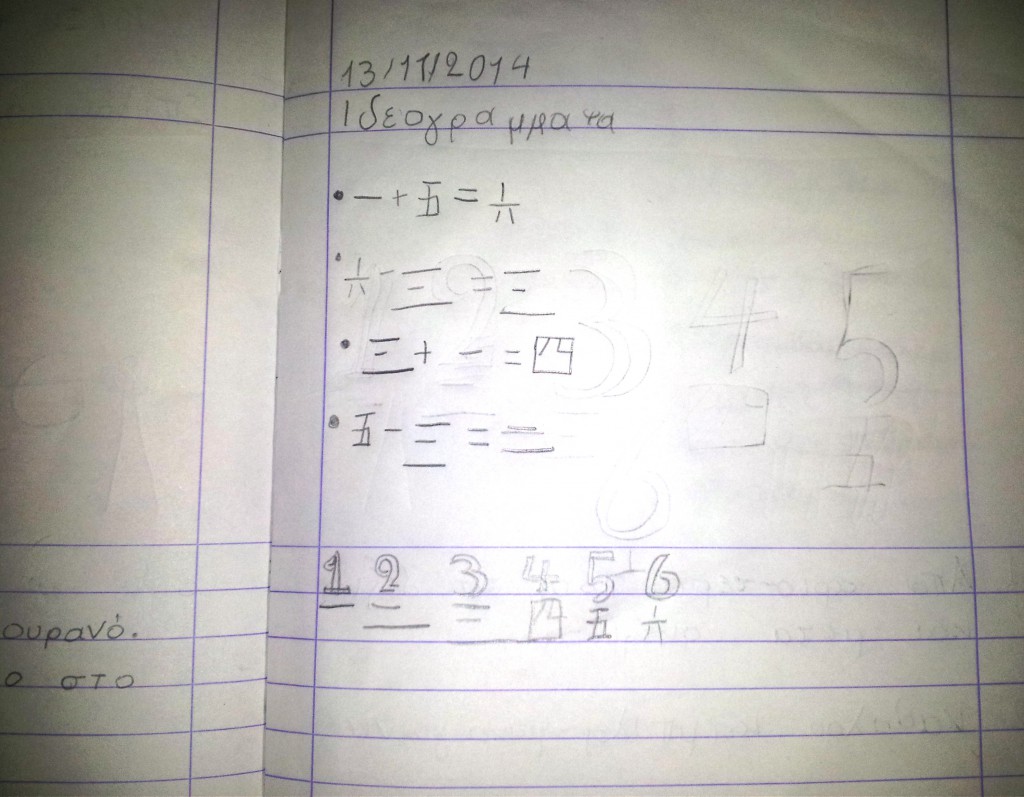 13/11/2014
Ιδεογράμματα
• 一 + 五 = 六
• 六 - 三 = 三
• 三 + 一 = 四
• 五 - 三 = 二
1 2 3 4 5 6
一 二 三 四 五 六
ουρανό.
ο στο